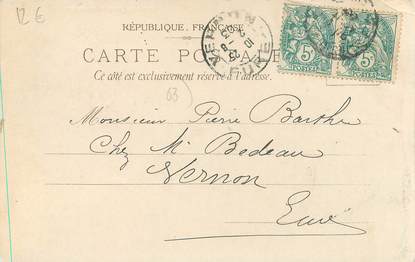 12 €
RÉPUBLIQUE FRANÇAISE
CARTE POSTALE
Ce côté est exclusivement réservé à l'adresse.
VERNON
EURE
5c
5c
63
Monsieur Pierre Barthe
Chez Mr Bedeau
Vernon
Eure